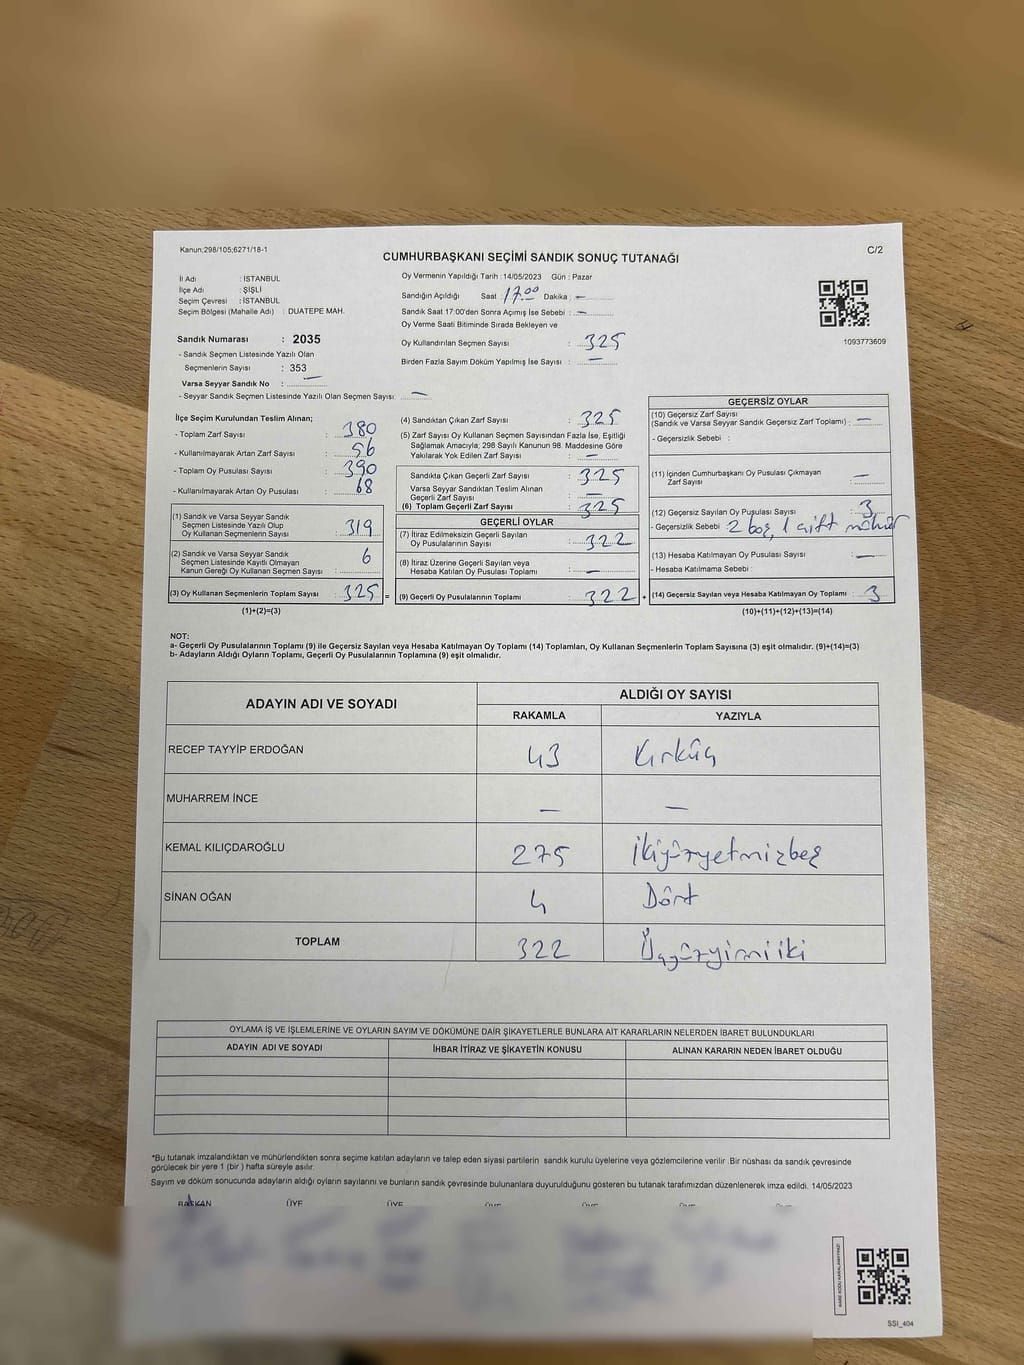 Kanun;298/105;6271/18-1
C/2
CUMHURBAŞKANI SEÇİMİ SANDIK SONUÇ TUTANAĞI
İl Adı : İSTANBUL
İlçe Adı : ŞİŞLİ
Seçim Çevresi : İSTANBUL
Seçim Bölgesi (Mahalle Adı) : DUATEPE MAH.
Sandık Numarası : 2035
- Sandık Seçmen Listesinde Yazılı Olan
Seçmenlerin Sayısı : 353
Varsa Seyyar Sandık No : —
- Seyyar Sandık Seçmen Listesinde Yazılı Olan Seçmen Sayısı: —
Oy Vermenin Yapıldığı Tarih :14/05/2023 Gün : Pazar
Sandığın Açıldığı Saat :17.00 Dakika : —
Sandık Saat 17:00'den Sonra Açımış İse Sebebi : —
Oy Verme Saati Bitiminde Sırada Bekleyen ve
Oy Kullandırılan Seçmen Sayısı : 325
Birden Fazla Sayım Döküm Yapılmış İse Sayısı : —
1093773609
İlçe Seçim Kurulundan Teslim Alınan;
- Toplam Zarf Sayısı : 380
- Kullanılmayarak Artan Zarf Sayısı : 56
- Toplam Oy Pusulası Sayısı : 390
- Kullanılmayarak Artan Oy Pusulası : 68
(1) Sandık ve Varsa Seyyar Sandık
Seçmen Listesinde Yazılı Olup
Oy Kullanan Seçmenlerin Sayısı : 319
(2) Sandık ve Varsa Seyyar Sandık
Seçmen Listesinde Kayıtlı Olmayan
Kanun Gereği Oy Kullanan Seçmen Sayısı : 6
(3) Oy Kullanan Seçmenlerin Toplam Sayısı : 325 =
(1)+(2)=(3)
(4) Sandıktan Çıkan Zarf Sayısı : 325
(5) Zarf Sayısı Oy Kullanan Seçmen Sayısından Fazla İse, Eşitliği
Sağlamak Amacıyla; 298 Sayılı Kanunun 98. Maddesine Göre
Yakılarak Yok Edilen Zarf Sayısı : —
Sandıkta Çıkan Geçerli Zarf Sayısı : 325
Varsa Seyyar Sandıktan Teslim Alınan
Geçerli Zarf Sayısı : —
(6) Toplam Geçerli Zarf Sayısı : 325
GEÇERLİ OYLAR
(7) İtiraz Edilmeksizin Geçerli Sayılan
Oy Pusulalarının Sayısı : 322
(8) İtiraz Üzerine Geçerli Sayılan veya
Hesaba Katılan Oy Pusulası Toplamı : —
(9) Geçerli Oy Pusulalarının Toplamı : 322 +
GEÇERSİZ OYLAR
(10) Geçersiz Zarf Sayısı
(Sandık ve Varsa Seyyar Sandık Geçersiz Zarf Toplamı) : —
- Geçersizlik Sebebi :
(11) İçinden Cumhurbaşkanı Oy Pusulası Çıkmayan
Zarf Sayısı : —
(12) Geçersiz Sayılan Oy Pusulası Sayısı : 3
- Geçersizlik Sebebi : 2 boş, 1 çift mühür
(13) Hesaba Katılmayan Oy Pusulası Sayısı : —
- Hesaba Katılmama Sebebi :
(14) Geçersiz Sayılan veya Hesaba Katılmayan Oy Toplamı : 3
(10)+(11)+(12)+(13)=(14)
NOT:
a- Geçerli Oy Pusulalarının Toplamı (9) ile Geçersiz Sayılan veya Hesaba Katılmayan Oy Toplamı (14) Toplamları, Oy Kullanan Seçmenlerin Toplam Sayısına (3) eşit olmalıdır. (9)+(14)=(3)
b- Adayların Aldığı Oyların Toplamı, Geçerli Oy Pusulalarının Toplamına (9) eşit olmalıdır.
ADAYIN ADI VE SOYADI
ALDIĞI OY SAYISI
RAKAMLA YAZIYLA
RECEP TAYYİP ERDOĞAN 43 Kırküç
MUHARREM İNCE — —
KEMAL KILIÇDAROĞLU 275 İkiyüzyetmişbeş
SİNAN OĞAN 4 Dört
TOPLAM 322 Üçyüzyirmiiki
OYLAMA İŞ VE İŞLEMLERİNE VE OYLARIN SAYIM VE DÖKÜMÜNE DAİR ŞİKAYETLERLE BUNLARA AİT KARARLARIN NELERDEN İBARET BULUNDUKLARI
ADAYIN ADI VE SOYADI İHBAR İTİRAZ VE ŞİKAYETİN KONUSU ALINAN KARARIN NEDEN İBARET OLDUĞU
*Bu tutanak imzalandıktan ve mühürlendikten sonra seçime katılan adayların ve talep eden siyasi partilerin sandık kurulu üyelerine veya gözlemcilerine verilir .Bir nüshası da sandık çevresinde
görülecek bir yere 1 (bir ) hafta süreyle asılır.
Sayım ve döküm sonucunda adayların aldığı oyların sayılarını ve bunların sandık çevresinde bulunanlara duyurulduğunu gösteren bu tutanak tarafımızdan düzenlenerek imza edildi. 14/05/2023
BAŞKAN ÜYE ÜYE ÜYE ÜYE ÜYE ÜYE
SSI_404